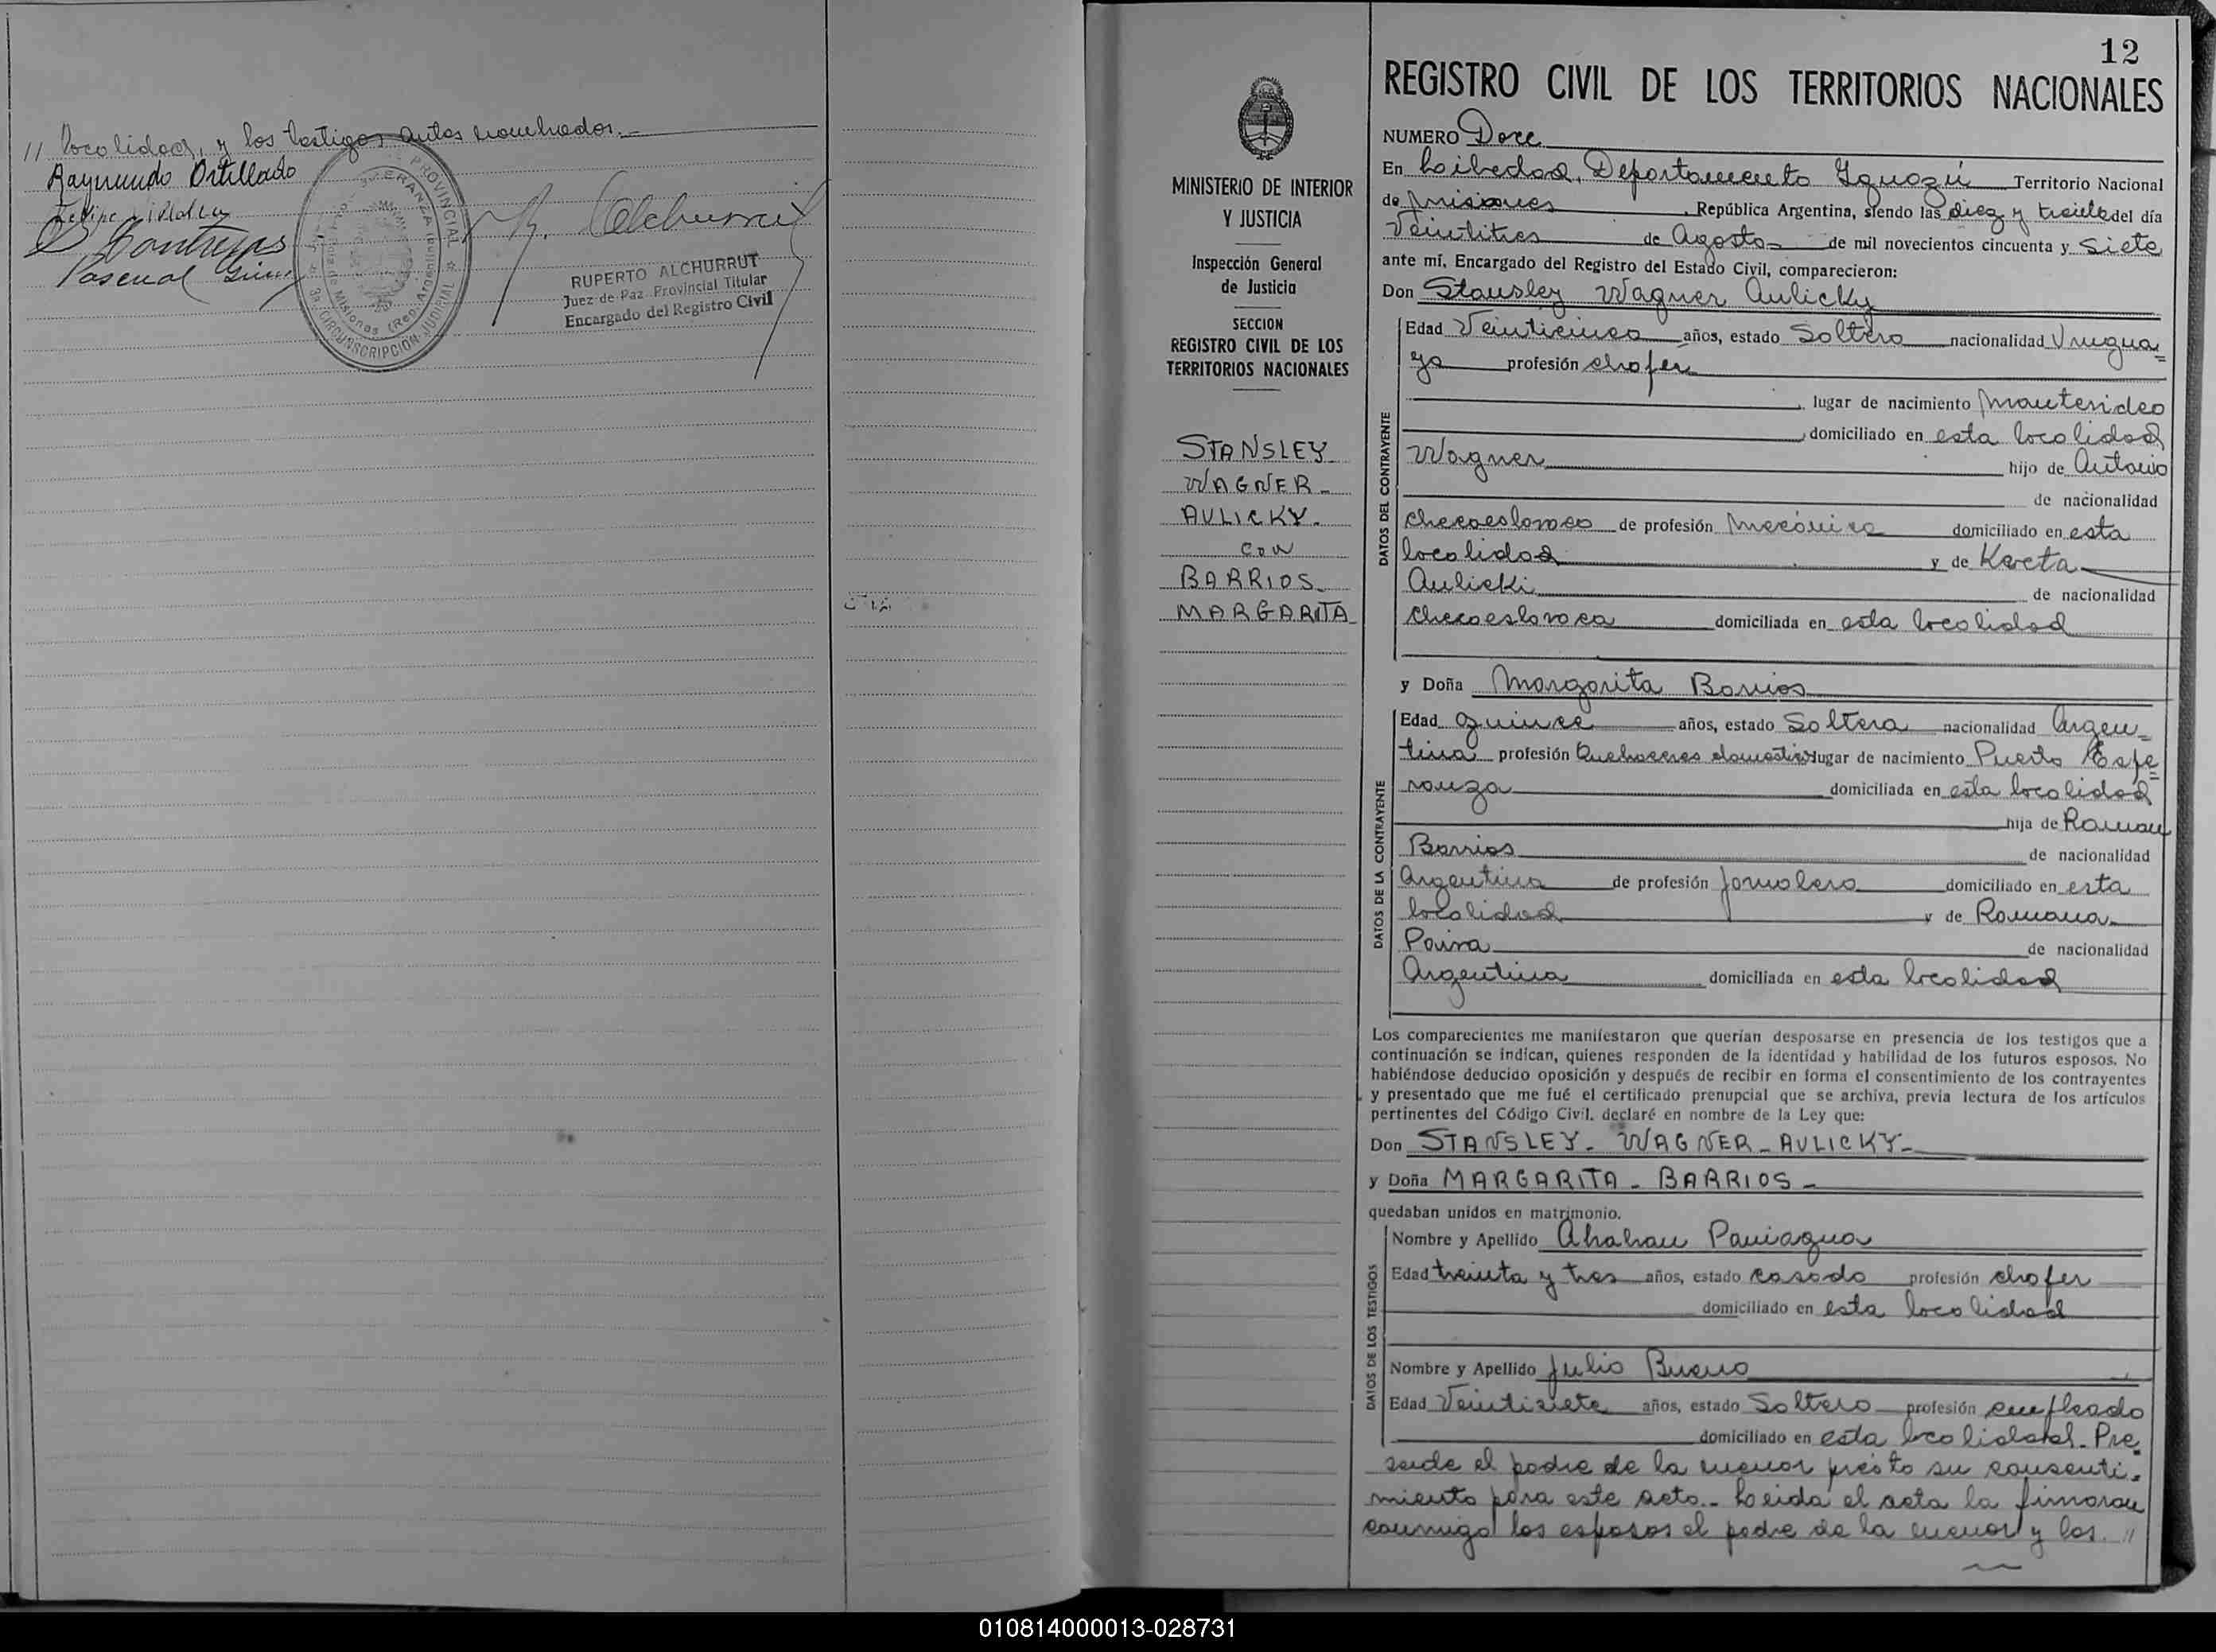 // localidad, y los testigos antes nombrados.
Raymundo Ortellado
Felipe
S Contreras
Pascual
PROVINCIAL
ESPERANZA
Misiones (Rep. Argentina)
3ª CIRCUNSCRIPCION JUDICIAL
R. Alchurrut
RUPERTO ALCHURRUT
Juez de Paz Provincial Titular
Encargado del Registro Civil
12
MINISTERIO DE INTERIOR
Y JUSTICIA
Inspección General
de Justicia
SECCION
REGISTRO CIVIL DE LOS
TERRITORIOS NACIONALES
STANSLEY
WAGNER-
AULICKY-
CON
BARRIOS-
MARGARITA-
REGISTRO CIVIL DE LOS TERRITORIOS NACIONALES
NUMERO Doce
En Libertad, Departamento Iguazú Territorio Nacional
de Misiones, República Argentina, siendo las diez y treinta del día
Veintitres de Agosto de mil novecientos cincuenta y Siete
ante mí, Encargado del Registro del Estado Civil, comparecieron:
Don Stansley Wagner Aulicky
DATOS DEL CONTRAYENTE
Edad Veinticinco años, estado Soltero nacionalidad Urugua=
ya profesión chofer
lugar de nacimiento Montevideo
domiciliado en esta localidad
Wagner hijo de Antonio
de nacionalidad
checoeslovaco de profesión Mecánico domiciliado en esta
localidad y de Kveta
Aulicki de nacionalidad
checoeslovaca domiciliada en esta localidad
y Doña Margarita Barrios
DATOS DE LA CONTRAYENTE
Edad Quince años, estado Soltera nacionalidad Argen=
tina profesión Quehaceres domestico lugar de nacimiento Puerto Espe=
ranza domiciliada en esta localidad
hija de Roman
Barrios de nacionalidad
Argentina de profesión Jornalero domiciliado en esta
localidad y de Romana
Paiva de nacionalidad
Argentina domiciliada en esta localidad
Los comparecientes me manifestaron que querían desposarse en presencia de los testigos que a
continuación se indican, quienes responden de la identidad y habilidad de los futuros esposos. No
habiéndose deducido oposición y después de recibir en forma el consentimiento de los contrayentes
y presentado que me fué el certificado prenupcial que se archiva, previa lectura de los artículos
pertinentes del Código Civil, declaré en nombre de la Ley que:
Don STANSLEY- WAGNER-AULICKY-
y Doña MARGARITA - BARRIOS -
quedaban unidos en matrimonio.
DATOS DE LOS TESTIGOS
Nombre y Apellido Abahan Paniagua
Edad treinta y tres años, estado casado profesión chofer
domiciliado en esta localidad
Nombre y Apellido Julio Bueno
Edad Veintisiete años, estado Soltero profesión empleado
domiciliado en esta localidad. Pre=
sente el padre de la menor presto su consenti=
miento para este acto.- Leida el acta la firmaron
conmigo los esposos el padre de la menor y los //
010814000013-028731